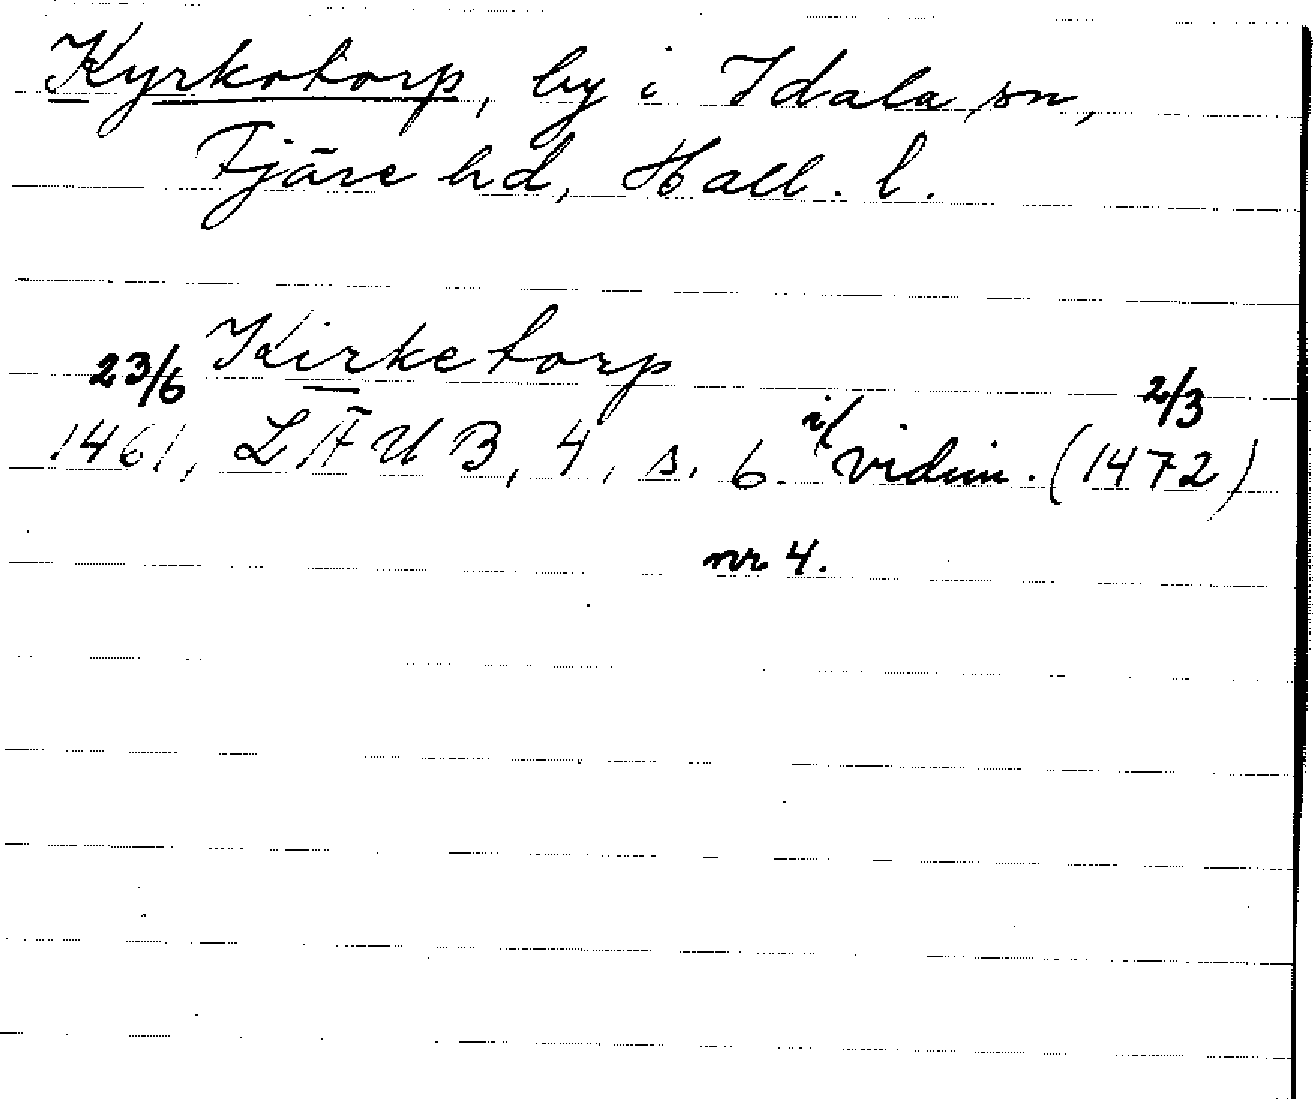 Kyrkotorp, by i Idala sn,
Fjäre hd, Hall. l.
Kirketorp
23/6 2/3
1461, LÄUB, 4, s. 6. i vidim. (1472)
nr 4.